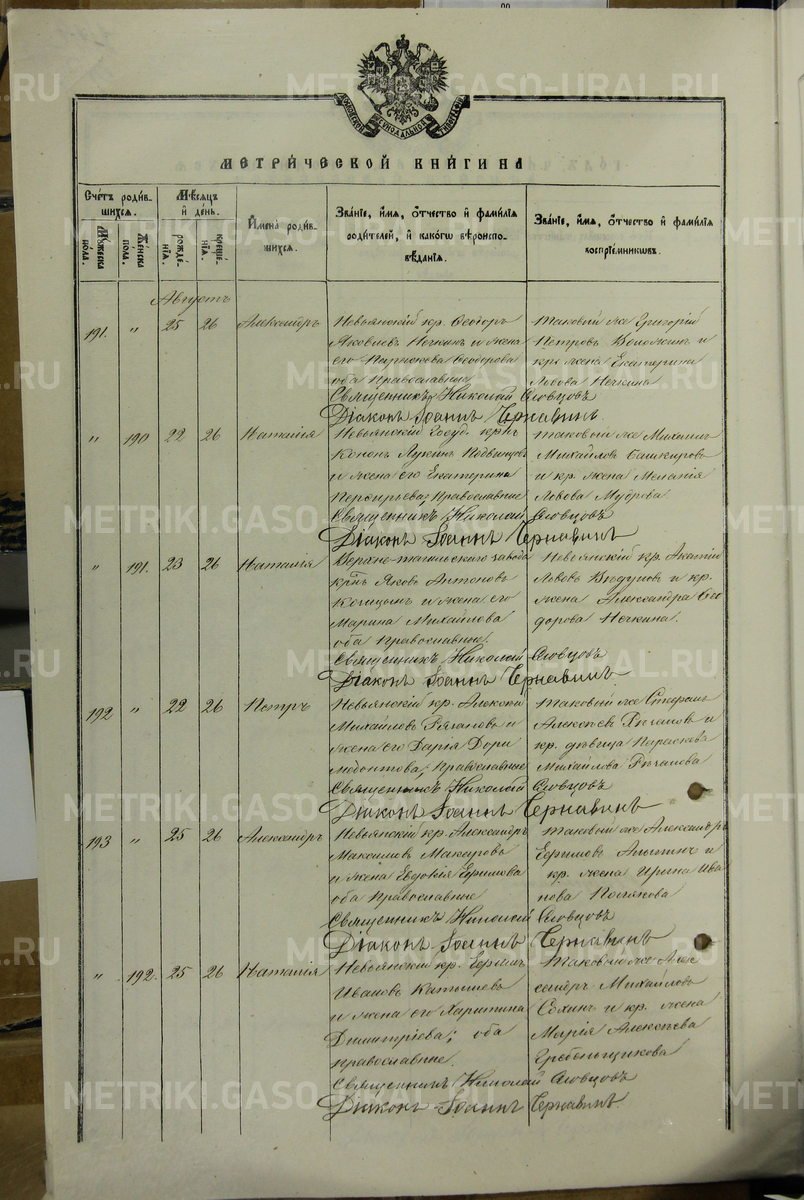 МЕТРИ́ЧЕСКОЙ КНИ́ГИ НА
Счетъ роди́вшихся.
Мужеска пола.
Женска пола.
Мѣсяцъ и день.
рожденїя.
крещенїя.
Имена роди́вшихся.
Зва́нїе, и́мя, о́тчество и фами́лїя родителей, и како́гѡ вѣроисповѣданїя.
Зва́нїе, и́мя, о́тчество и фами́лїя воспрїемникѡвъ.
Августъ
191. " 25 26 Александръ
Невьянскій кр. Ѳеодоръ
Яковлевъ Нечкинъ и жена
его Параскева Ѳеодорова
оба Православные
Таковый же Григорій
Петровъ и
кр. жена Екатерина
Львова Нечкина
Священникъ Николай Словцовъ
Діаконъ Іоаннъ Чернавинъ.
" 190 22 26 Наталія
Невьянскій Госуд. крнъ
Кононъ Лукинъ Подвинцевъ
и жена его Екатерина
Порфирьева; Православные
Таковый же Михаилъ
Михайловъ Башкировъ
и кр. жена Меланія
Львова
Священникъ Николай Словцовъ
Діаконъ Іоаннъ Чернавинъ
" 191. 23 26 Наталія
Верхне-тагильского завода
крнъ Яковъ Антоновъ
и жена его
Марина Михайлова
оба Православные.
Невьянскій кр.
Львовъ и кр.
жена Александра Ѳео
дорова Нечкина.
Священникъ Николай Словцовъ
Діаконъ Іоаннъ Чернавинъ
192 " 22 26 Петръ
Невьянскій кр. Алексѣй
Михайловъ и
жена его Дарья Дори
медонтова; Православные
Таковый же Стефанъ
Алексѣевъ и
кр. дѣвица Параскева
Михайлова
Священникъ Николай Словцовъ
Діаконъ Іоаннъ Чернавинъ
193 " 25 26 Александръ
Невьянскій кр. Александръ
Максимовъ Макаровъ
и жена Евдокія Ефимова
оба Православные
Таковый же Александръ
Ефимовъ и
кр. жена Ирина Ива
нова Полякова
Священникъ Николай Словцовъ
Діаконъ Іоаннъ Чернавинъ
" 192. 25 26 Наталія
Невьянскій кр.
Ивановъ
и жена его Харитина
Димитріева; оба
православные.
Таковый же Але
ксандръ Михайловъ
и кр. жена
Марія Алексѣева
Гребенщикова
Священникъ Николай Словцовъ
Діаконъ Іоаннъ Чернавинъ.
METRIKI.GASO-URAL.RU